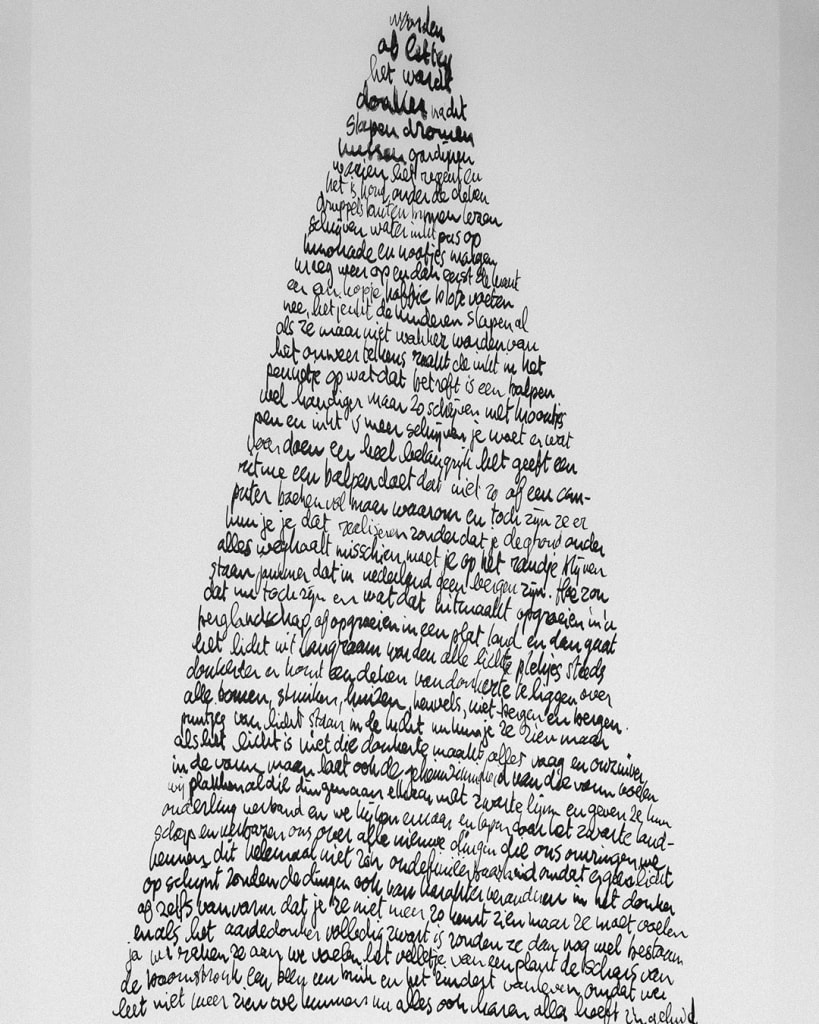 worden
of letter
het wordt
donker nacht
slapen dromen
kussen gordijnen
waaien het regent en
het is koud onder de deken
druppels buiten binnen lezen
schrijven water inkt pas op
limonade en nootjes morgen
vroeg weer op en dan eerst de krant
en een kopje koffie blote voeten
nee, het jeukt de kinderen slapen al
als ze maar niet wakker worden van
het onweer telkens raakt de inkt in het
pennetje op wat dat betreft is een balpen
veel handiger maar zo schrijven met kroontjes
pen en inkt is meer schrijven je moet er wat
voor doen een heel belangrijk het geeft een
ritme een balpen doet dat niet zo of een com-
puter boeken vol maar waarom en toch zijn ze er
kun je je dat realiseren zonder dat je de grond onder
alles weghaalt misschien moet je op het randje blijven
staan jammer dat in nederland geen bergen zijn. Hoe zou
dat nu toch zijn en wat dat uitmaakt opgroeien in 'n
berglandschap of opgroeien in een plat land en dan gaat
het licht uit langzaam worden alle lichte plekjes steeds
donkerder er komt een deken van donkerte te liggen over
alle bomen, struiken, huizen, heuvels, niet-bergen en bergen.
puntjes van licht staan in de lucht nu kun je ze zien maar
als het licht is niet die donkerte maakt alles vaag en onzuiver
in de vorm maar laat ook de van die vorm voelen
wij plakken al die dingen aan elkaar met zwarte lijm en geven ze hun
onderling verband en we kijken ernaar en lopen door het zwarte land-
schap en verbazen ons over alle nieuwe dingen die ons omringen we
kennen dit helemaal niet zo'n ondefinieerbaarheid omdat er geen licht
op schijnt zonder de dingen ook van karakter veranderen in het donker
of zelfs van vorm dat je ze niet meer zo kunt zien maar ze moet voelen
en als het aardedonker volledig zwart is zouden ze dan nog wel bestaan
ja wij raken ze aan we voelen het velletje van een plant de schors van
de boomstronk een been een buik en het hindert van geven omdat we
het niet meer zien we kunnen nu alles ook horen alles heeft z'n geluid